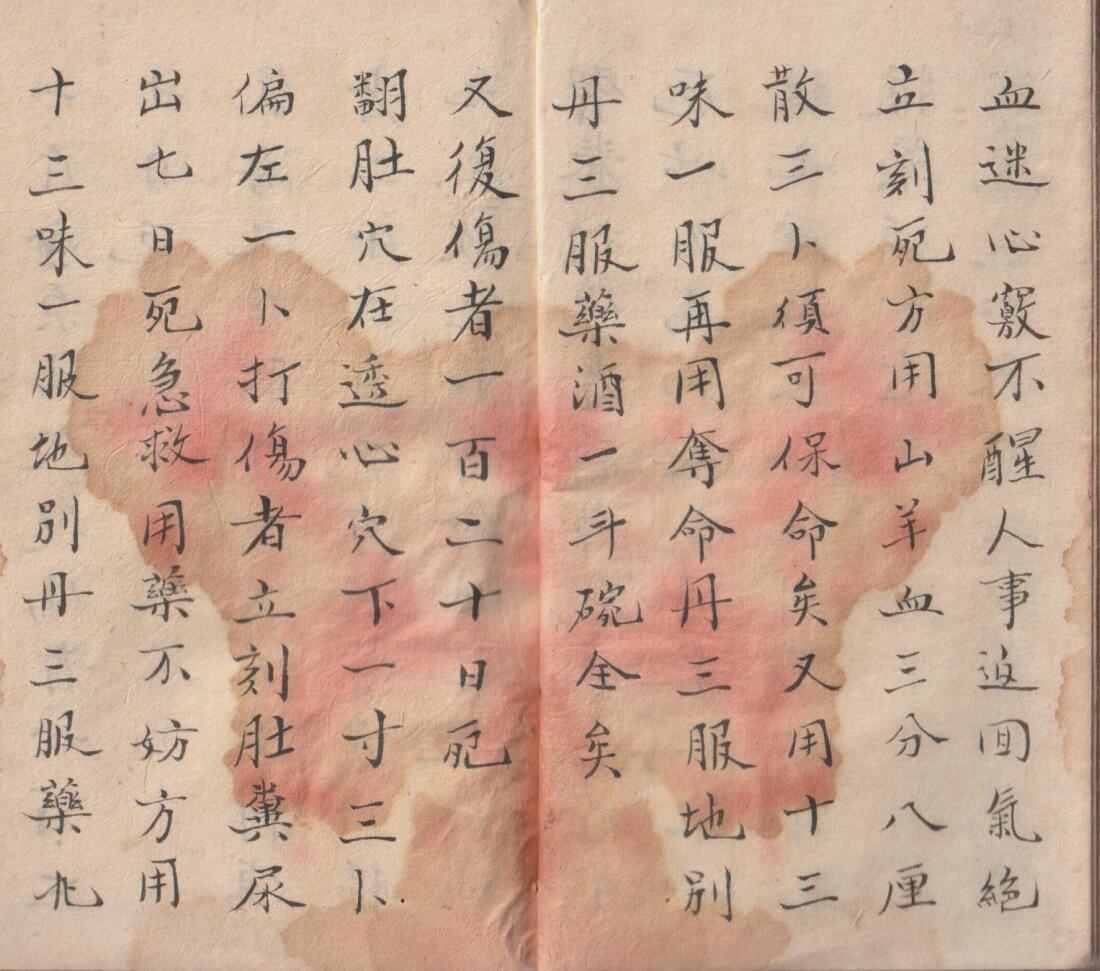 血迷心竅不醒人事返回氣絕
立刻死方用山羊血三分八厘
散三卜須可保命矣又用十三
味一服再用奪命丹三服地別
丹三服藥酒一斗碗全矣
又復傷者一百二十日死
翻肚穴在透心穴下一寸三卜
偏左一卜打傷者立刻肚糞尿
出七日死急救用藥不妨方用
十三味一服地別丹三服藥